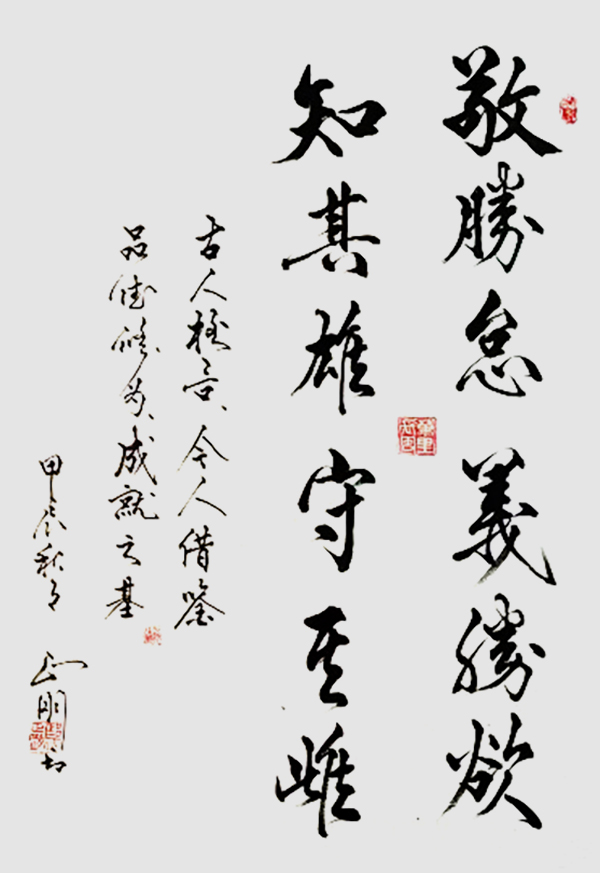 敬勝怠義勝欲
知其雄守其雌
古人格言、今人借鑒
品德修為、成就之基
甲辰秋月 正明書